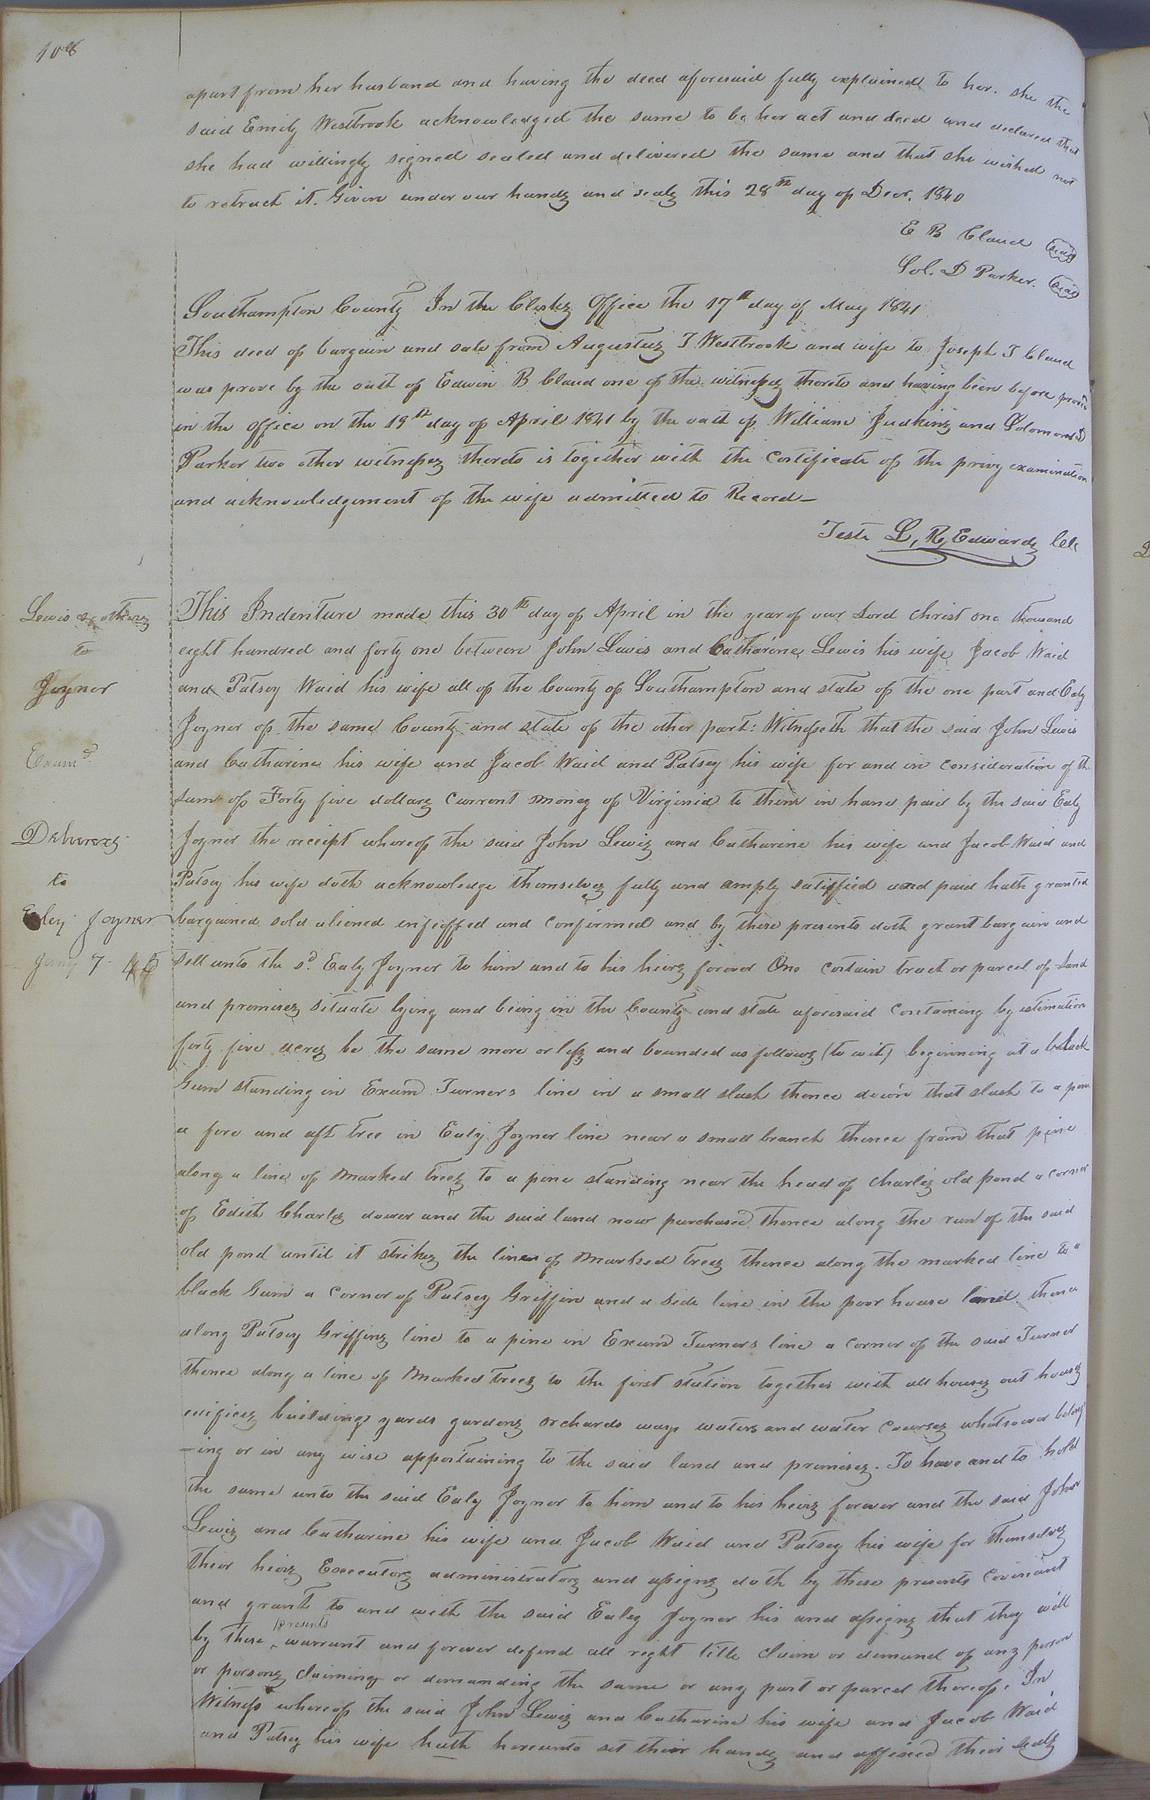 108
apart from her husband and having the deed aforesaid fully explained to her. she the
said Emily Westbrook acknowledged the same to be her act and deed and declared that
she had willingly signed sealed and delivered the same and that she wished not
to retract it. Given under our hands and seals this 28th day of Decr. 1840
E B Claud (seal)
Sol. D Parker. (seal)
Southampton County In the Clerks Office the 17th day of May 1841
This deed of bargain and sale from Augustus J Westbrook and wife to Joseph T Claud
was prove by the oath of Edwin B Claud one of the witnesses thereto and having been before proven
in the office on the 19th day of April 1841 by the oath of William Judkins and Solomon D
Parker two other witnesses thereto is together with the Certificate of the privy examination
and acknowledgement of the wife admitted to Record—
Teste L, R, Edwards Clk
Lewis & others
to
Joyner
Examd.
Delivered
to
Ealey Joyner
Jany 7
This Indenture made this 30th day of April in the year of our Lord Christ one thousand
eight hundred and forty one between John Lewis and Catharine Lewis his wife Jacob Waid
and Patsey Waid his wife all of the County of Southampton and state of the one part and Ealy
Joyner of the same County and state of the other part: Witnesseth that the said John Lewis
and Catharine his wife and Jacob Waid and Patsey his wife for and in consideration of the
sum of Forty five dollars Current money of Virginia to them in hand paid by the said Ealy
Joyner the receipt whereof the said John Lewis and Catharine his wife and Jacob Waid and
Patsey his wife doth acknowledge themselves fully and amply satisfied and paid hath granted
bargained sold aliened enfeoffed and confirmed and by these presents doth grant bargain and
sell unto the sd. Ealy Joyner to him and to his heirs forever One certain tract or parcel of Land
and premises situate lying and being in the County and state aforesaid containing by estimation
forty five acres be the same more or less and bounded as follows (to wit) beginning at a black
Gum standing in Exum Turners line in a small slash thence down that slash to a pine
a fore and aft tree in Ealy Joyner line near a small branch thence from that pine
along a line of marked trees to a pine standing near the head of Charles old pond a corner
of Edith Charles dower and the said land now purchased thence along the run of the said
old pond until it strikes the line of marked trees thence along the marked line to a
black Gum a corner of Patsey Griffin and a side line in the poor house land thence
along Patsey Griffins line to a pine in Exum Turners line a corner of the said Turner
thence along a line of marked trees to the first station together with all houses out houses
edifices buildings yards gardens orchards ways waters and water courses whatsoever belong
-ing or in any wise appertaining to the said land and premises. To have and to hold
the same unto the said Ealy Joyner to him and to his heirs forever and the said John
Lewis and Catharine his wife and Jacob Waid and Patsey his wife for themselves
their heirs Executors administrators and assigns doth by these presents covenant
and grant to and with the said Ealey Joyner his and assigns that they will
by these presents warrant and forever defend all right title claim or demand of any person
or persons claiming or demanding the same or any part or parcel thereof. In
Witness whereof the said John Lewis and Catharine his wife and Jacob Waid
and Patsey his wife hath hereunto set their hands and affixed their seals